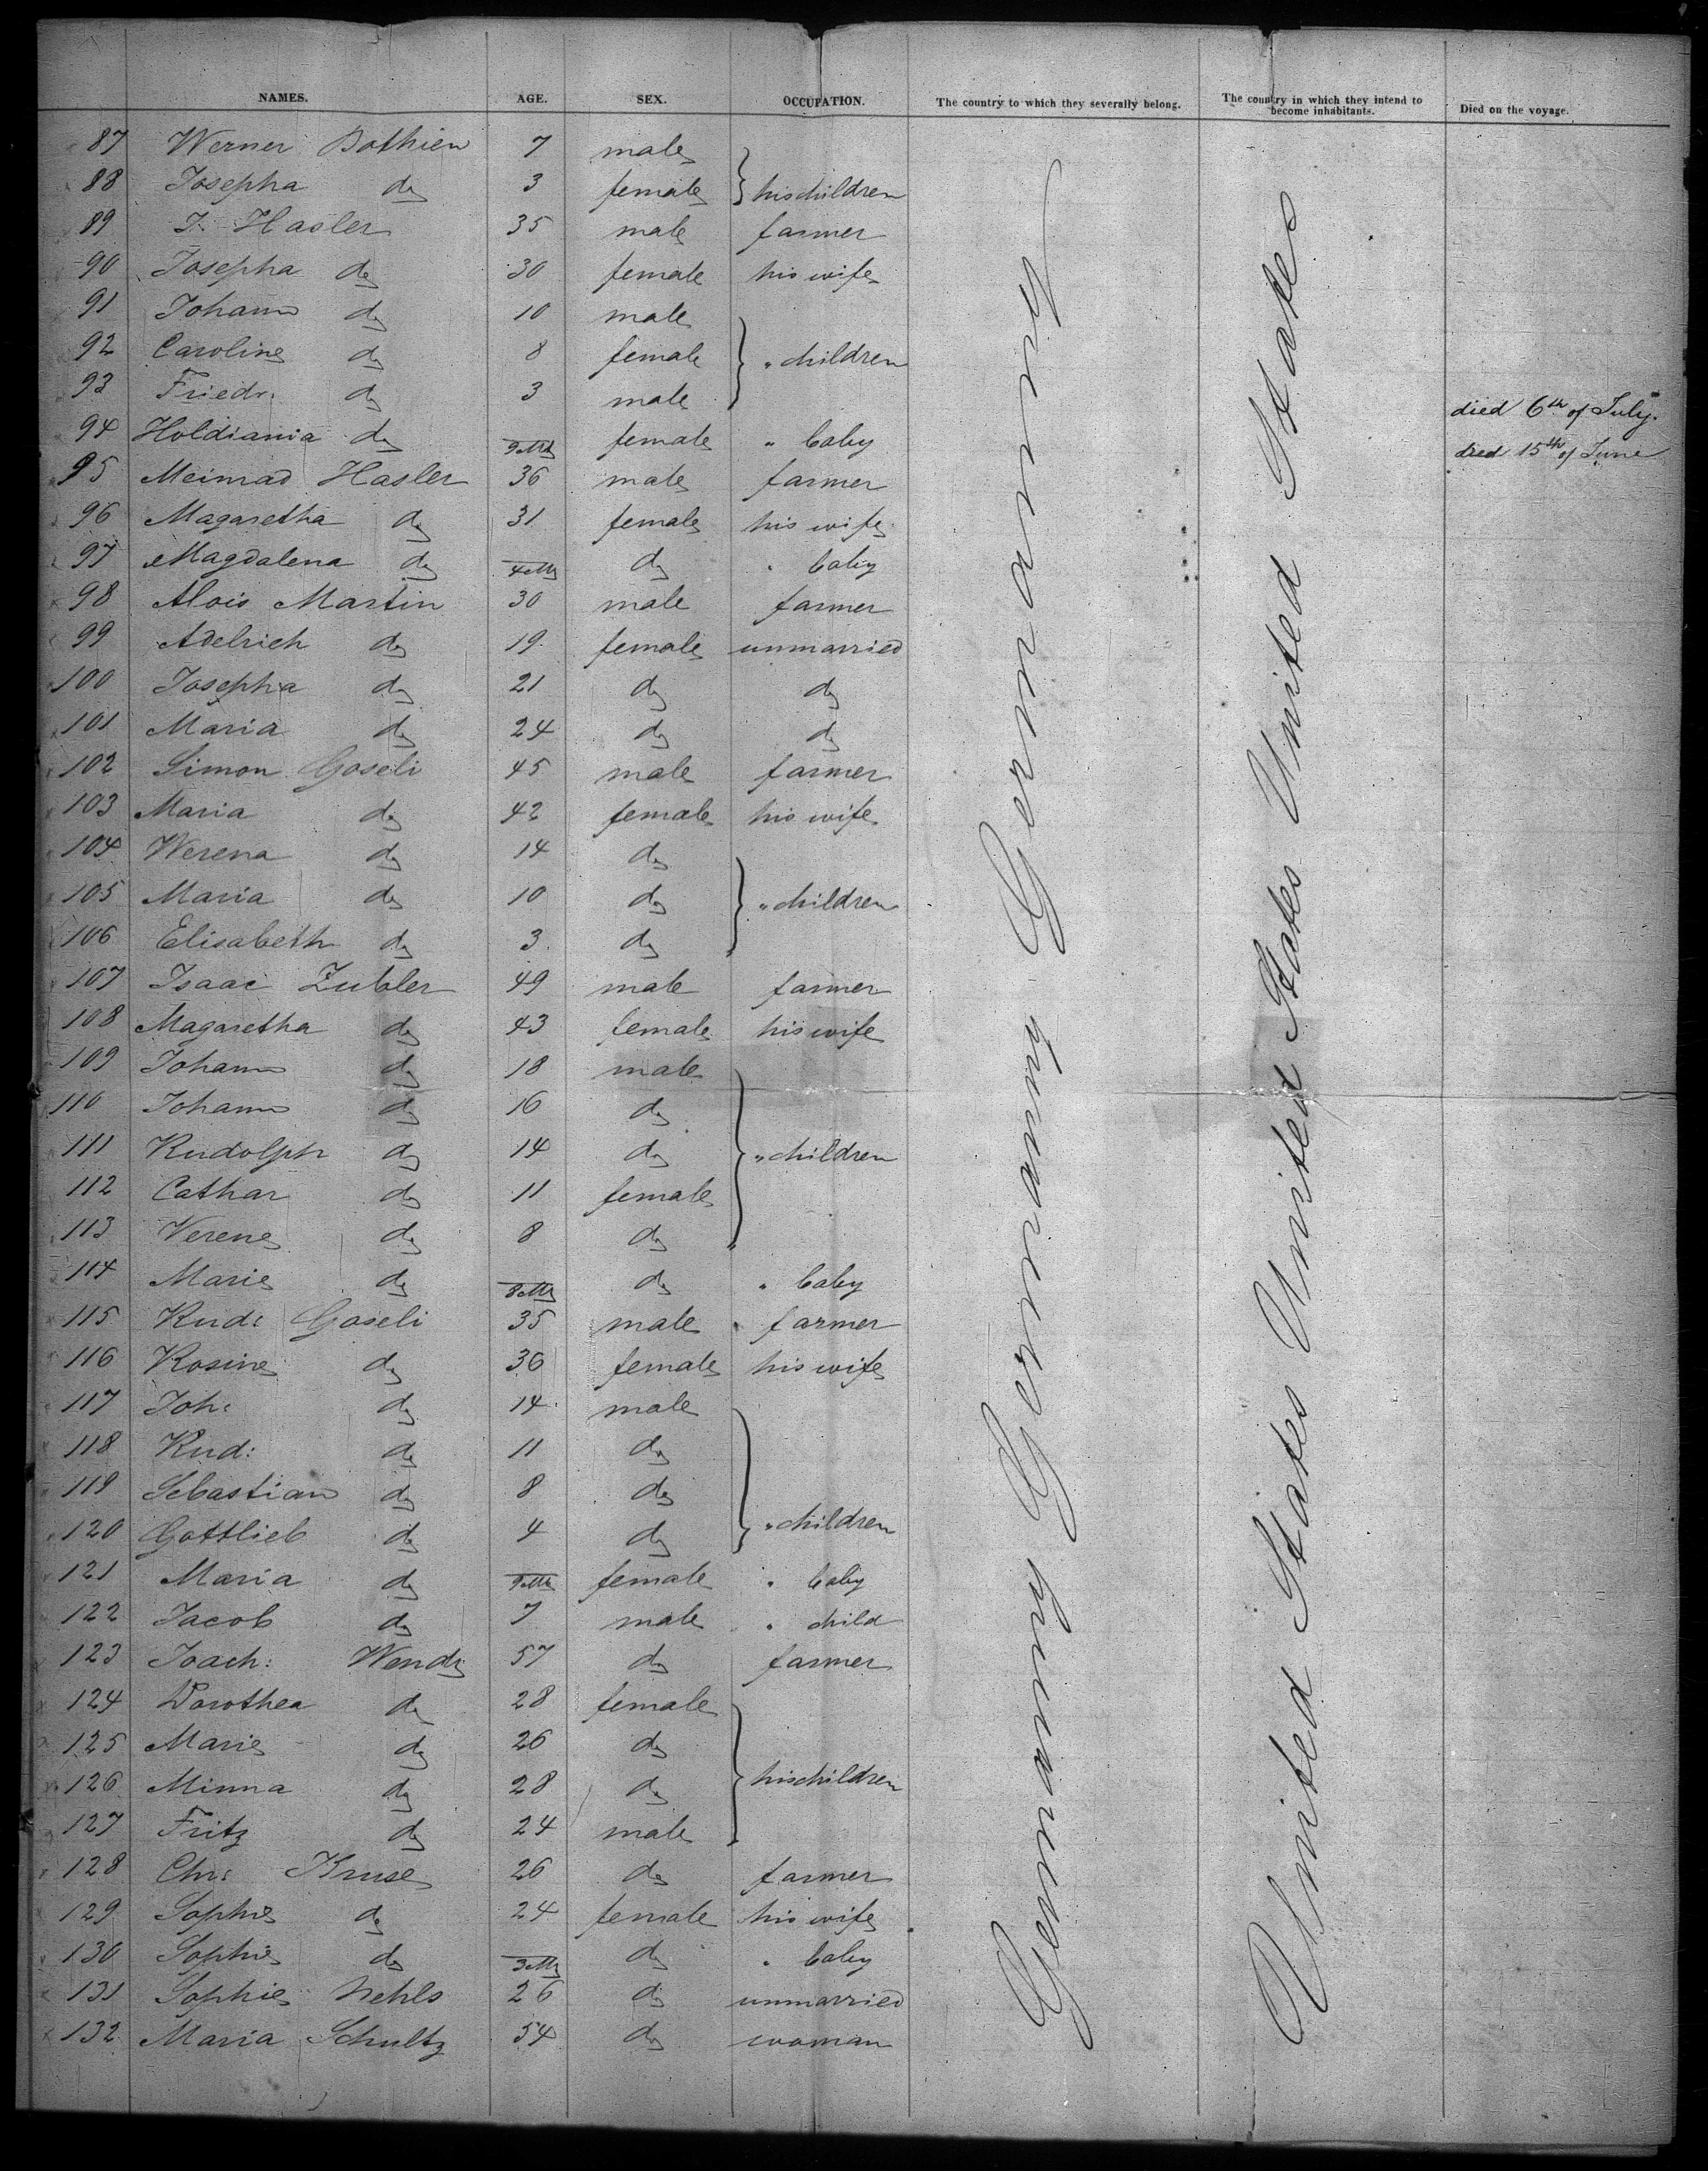 NAMES. AGE. SEX. OCCUPATION. The country to which they severally belong. The country in which they intend to become inhabitants. Died on the voyage.
87 Werner Bothien 7 male
88 Josepha do 3 female } his children
89 J. Hasler 35 male farmer
90 Josepha do 30 female his wife
91 Johann do 10 male
92 Caroline do 8 female } " children
93 Friedr: do 3 male died 6th of July.
94 Holdiania do 9 Mts female " baby died 15th of June
95 Meinrad Hasler 36 male farmer
96 Magaretha do 31 female his wife
97 Magdalena do 4 Mts do " baby
98 Alois Martin 30 male farmer
99 Adelrich do 19 female unmarried
100 Josepha do 21 do do
101 Maria do 24 do do
102 Simon Goseli 45 male farmer
103 Maria do 42 female his wife
104 Werena do 14 do
105 Maria do 10 do } " children
106 Elisabeth do 3 do
107 Isaac Zubler 49 male farmer
108 Magaretha do 43 female his wife
109 Johann do 18 male
110 Johann do 16 do
111 Rudolph do 14 do } " children
112 Cathar do 11 female
113 Verene do 8 do
114 Marie do 8 Mts do " baby
115 Rud: Goseli 35 male farmer
116 Rosine do 36 female his wife
117 Joh: do 14 male
118 Rud: do 11 do
119 Sebastian do 8 do
120 Gottlieb do 4 do } " children
121 Maria do 9 Mts female " baby
122 Jacob do 7 male " child
123 Joach: Wendt 57 do farmer
124 Dorothea do 28 female
125 Marie do 26 do
126 Minna do 28 do } his children
127 Fritz do 24 male
128 Chr: Kruse 26 do farmer
129 Sophie do 24 female his wife
130 Sophie do 3 Mts do " baby
131 Sophie Nehls 26 do unmarried
132 Maria Schultz 54 do woman
Germany Germany Germany
United States United States United States